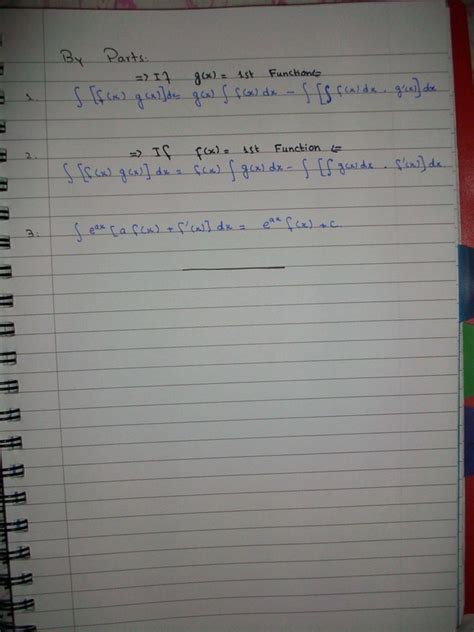 By Parts:
⇒ If g(x) = 1st Function ⇐
1. ∫ [f(x) g(x)]dx = g(x) ∫ f(x) dx - ∫ [∫ f(x) dx . g'(x)] dx
2. ⇒ If f(x) = 1st Function ⇐
∫ [f(x) g(x)] dx = f(x) ∫ g(x) dx - ∫ [∫ g(x) dx . f'(x)] dx
3. ∫ e^ax [a f(x) + f'(x)] dx = e^ax f(x) + c.